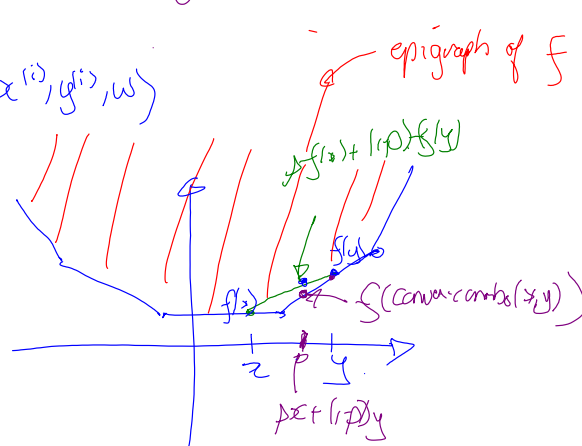 epigraph of f
x⁽ⁱ⁾, y⁽ⁱ⁾, w)
pf(x) + (1-p)f(y)
f(y)
f(x)
f(convex combo(x,y))
x
p
y
px + (1-p)y